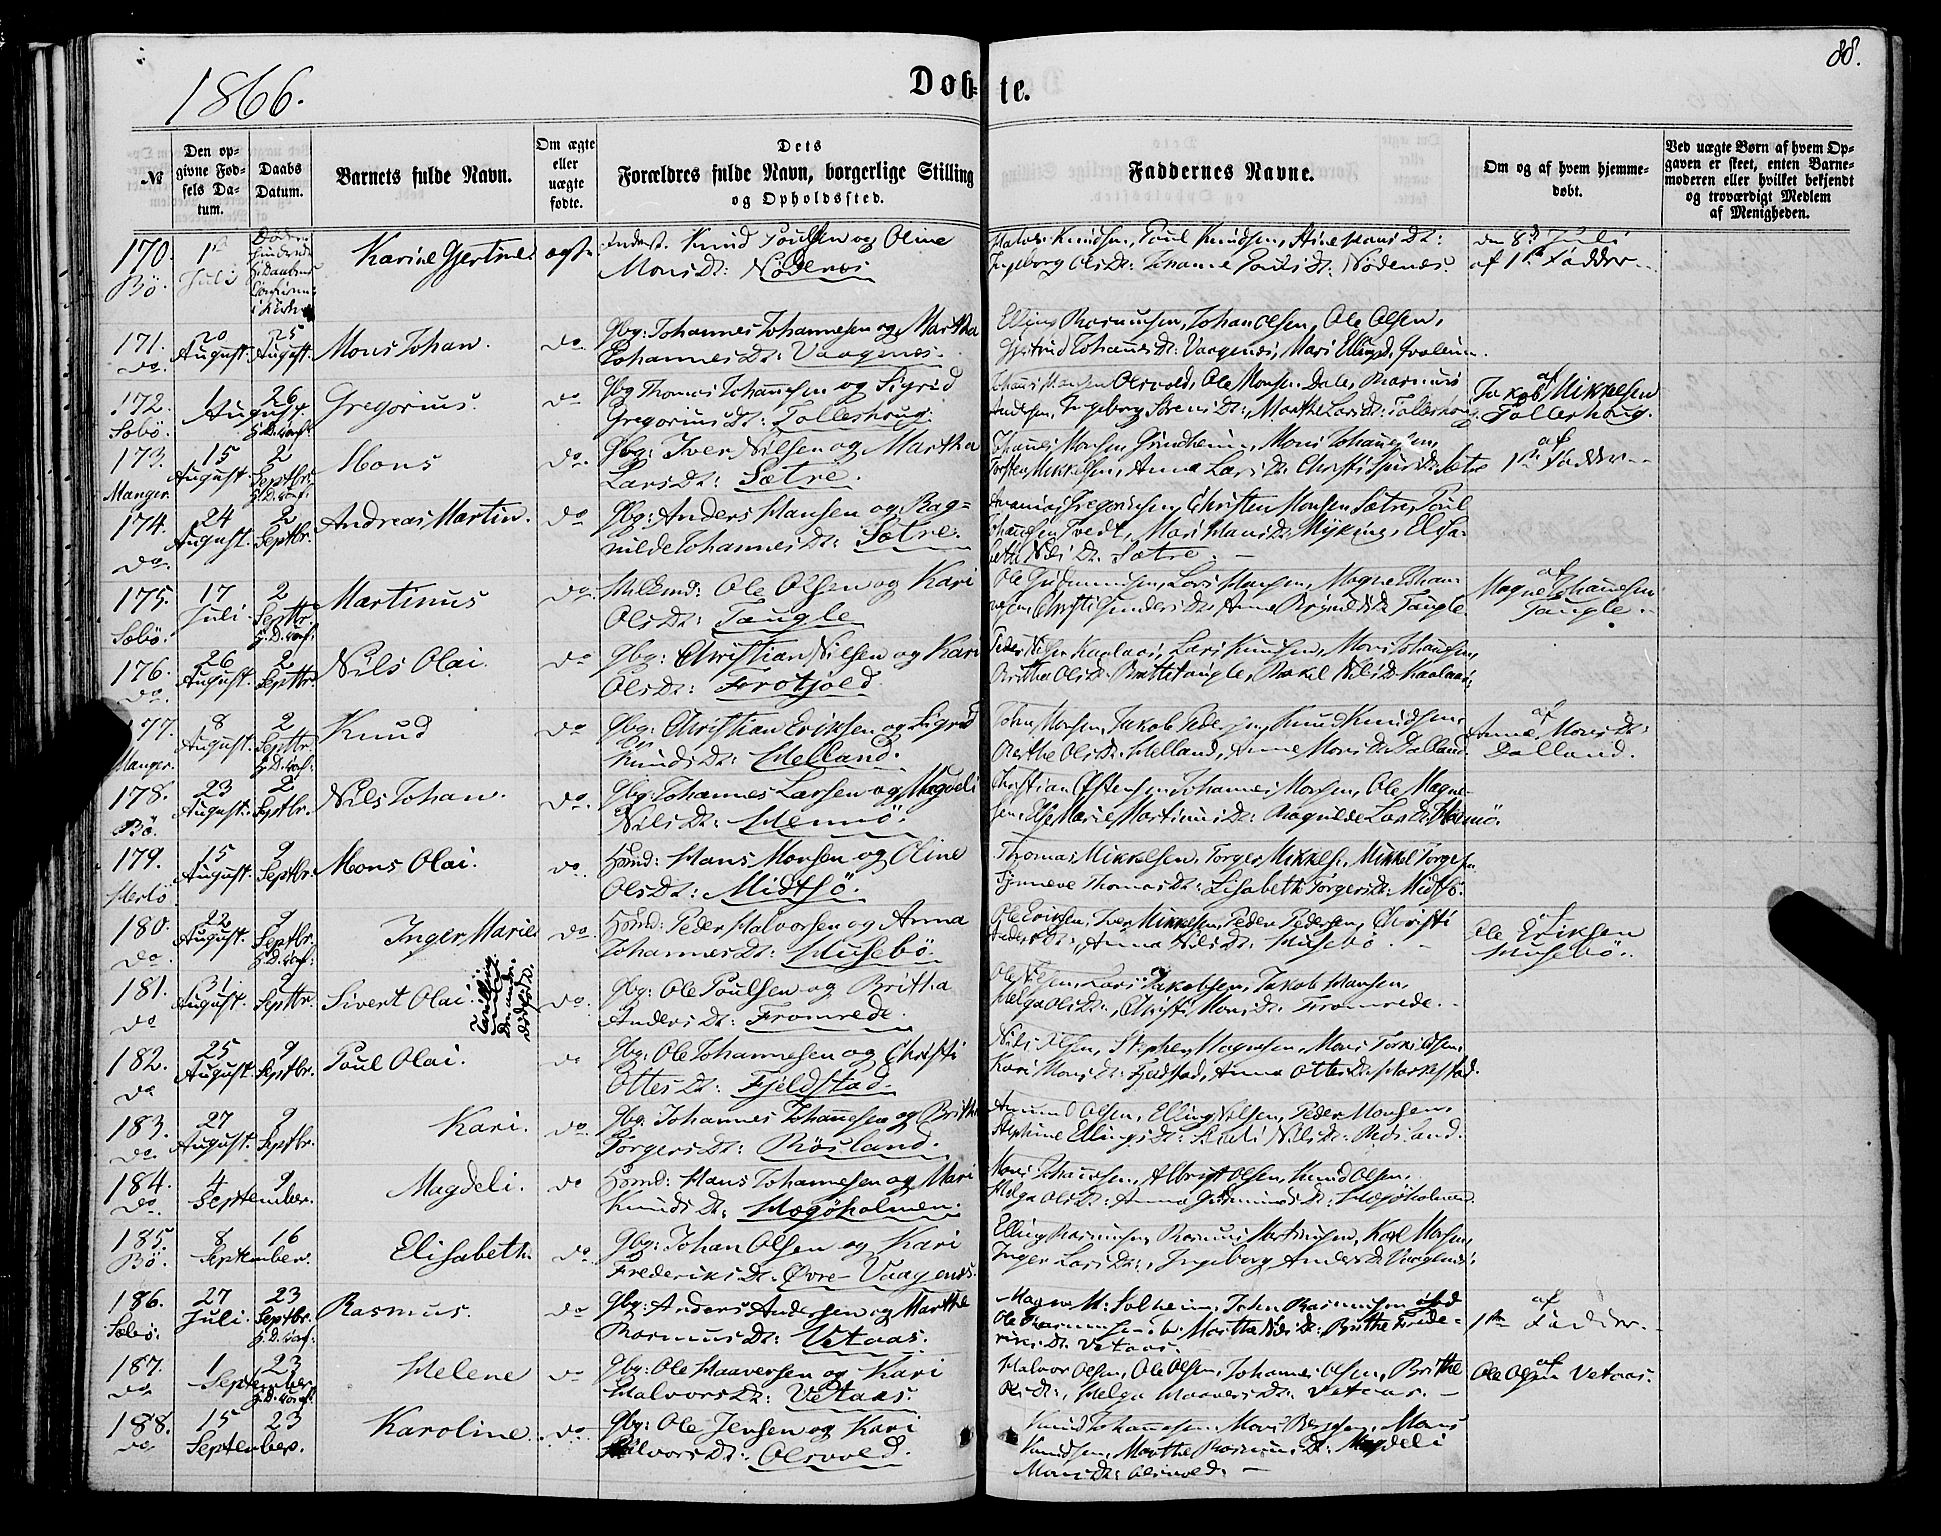 88.
1866.
Døb-te.
№
Den op-
givne Fød-
sels Da-
tum.
Daabs
Datum.
Barnets fulde Navn.
Om ægte
eller
uægte
fødte.
Dets
Forældres fulde Navn, borgerlige Stilling
og Opholdssted.
Faddernes Navne.
Om og af hvem hjemme-
døbt.
Ved uægte Børn af hvem Op-
gaven er skeet, enten Barne-
moderen eller hvilket bekjendt
og troværdigt Medlem
af Menigheden.
170. Bö. 1 Juli
Karine Gjertine ægt.
Knud Poulsen og Oline
Monsdt: Nödenes
Knudsen, Poul Knudsen, Stine Hansdt:
Ingeborg Olsdt: Johanne Poulsdt: Nödenes.
den 8d Juli
af 1ste Fadder
171. do. 20 August. 25 August.
Mons Johan. do
Gbg: Johannes Johannesen og Martha
Johannesdt: Vaagenes.
Elling Rasmussen, Johan Olsen, Ole Olsen,
Gjertrud Johannesdt: Vaagenes, Mari
172. Sæbö. 1 26 August. H.D. conf:
Gregorius. do
Gbg Thomas Johannesen og Sigrid
Gregoriusdt: Tollershoug.
Johannes Monsen Olsvold, Ole Monsen Dale, Rasmus
Andersen, Ingeborg Sörensdt:, Marthe Larsdt: Tollershoug
af
Jakob Mikkelsen
Tollershoug.
173. Manger. 15 August. 2 Septbr. H.D. conf:
Mons do.
Gbg: Iver Nilsen og Martha
Larsdt: Sætre.
Johannes Monsen Grindheim, Mons Johannesen,
Torsten Mikkelsen, Anna Larsdt: Sætre
af
1ste Fadder
174. do. 24 August. 2 Septbr.
Andreas Martin. do
Gbg: Anders Hansen og Rag-
nilde Johannesdt: Sætre.
Ananias Gregoriusen, Christen Monsen Sætre, Poul
Johannesen Tvedt, Mari Hansdt: Myking, Elisa-
beth Nilsdt: Sætre.
175. Sæbö. 17 Juli 2 Septbr. H.D. conf:
Martinus do.
Ole Olsen og Kari
Olsdt: Tangle
Ole Gudmundsen, Lars Hansen, Magne Johan-
nesen, Christi Gundersdt:, Anne Tangle
af
Magne Johannesen
Tangle.
176. do. 26 August. 2 Septbr
Nils Olai. do
Gbg: Christian Nilsen og Kari
Olsdt: Frotjold
Peder Nilsen Kaalaas, Lars Knudsen, Mons Johannesen,
Brithe Olsdt: Brattetangle, Rakel Nilsdt: Kaalaas,
177. Manger. 8 August. 2 Septbr. H.D. conf:
Knud do
Gbg: Christian Eriksen og Sigrid
Knudsdt: Helland.
John Monsen, Jakob Pedersen, Knud Knudsen,
Marthe Olsdt: Helland, Anne Monsdt: Dalland.
af
Anne Monsdt:
Dalland.
178. Bö. 23 August. 2 Septbr.
Nils Johan. do.
Gbg: Johannes Larsen og Magdeli
Nilsdt: Hennö.
Christian Östensen, Johannes Monsen, Ole Magne-
sen, Marie Martinusdt:, Ragnilde Larsdt: Hennö.
179. Herlö 15 August. 9 Septbr.
Mons Olai. do.
Hsmd: Hans Monsen og Oline
Olsdt: Midtsö.
Thomas Mikkelsen, Torger Mikkels., Mikkel Torgersen
Synneve Thomasdt: Lisabeth Torgersdt: Midtsö.
180. do. 22 August. 9 Septbr. H.D. conf:
Inger Marie do.
Hsmd: Peder Halvorsen og Anna
Johannesdt: Husebö.
Ole Eriksen, Iver Mikkelsen, Peder Pedersen, Christi
Andersdt:, Anna Nilsdt: Husebö.
af
Ole Eriksen
Husebö.
181. do 31 August. 9 Septbr.
Sivert Olai. do.
Tvilling
den anden
dödfødt.
Gbg: Ole Poulsen og Britha
Andersdt: Fromrede.
Ole Nilsen, Lars Jakobsen, Jakob Hansen,
Helga Olsdt:, Christi Monsdt: Fromrede.
182. do 25 August. 9 Septbr.
Poul Olai. do
Gbg: Ole Johannesen og Christi
Ottesdt: Fjeldstad.
Nils Olsen, Stephen Magnesen, Mons Torkildsen,
Kari Monsdt: Fjeldstad, Anna Ottesdt:
183. do 27 August. 9 Septbr.
Kari. do.
Gbg: Johannes Johannesen og Brithe
Torgersdt: Rösland.
Amund Olsen, Elling Nilsen, Peder Monsen,
Stephine Ellingsdt: Nilsdt: Rösland.
184. do. 4 9 September.
Magdeli. do
Hsmd: Hans Johannesen og Mari
Knudsdt: Hægöholmen.
Mons Johannesen, Albrigt Olsen, Knud Olsen,
Helga Olsdt: Anna Gudmundsdt: Hægöholmen
185. Bö. 8 16 September.
Elisabeth. do.
Gbg: Johan Olsen og Kari
Frederiksdt. Övre-Vaagenes.
Elling Rasmussen, Rasmus Martinusen, Karl Monsen,
Inger Larsdt:, Ingeborg Andersdt: Vaagenes,
186. Sæbö. 27 Juli. 23 Septbr. H.D. conf:
Rasmus. do
Gbg: Anders Andersen og Marthe
Rasmusdt: Vetaas.
Magne M. Solheim, John Rasmussen
Ole Rasmussen Martha Nilsdt: Brithe Frede-
riksdt. Vetaas.
af
1ste Fadder.
187. do. 1 23 September H.D. conf:
Helene do
Gbg: Ole Haaversen og Kari
Halvorsdt: Vetaas.
Halvor Olsen, Ole Olsen, Johannes Olsen, Brithe
Olsdt:, Helga Haaversdt: Vetaas.
af
Ole Olsen Vetaas.
188. do 15 23 September.
Karoline. do.
Gbg: Ole Jensen og Kari
Halvorsdt: Olsvold.
Knud Johannesen, Mons Mons
Knudsen, Marthe Rasmusdt: Magdeli
Monsdt: Olsvold.